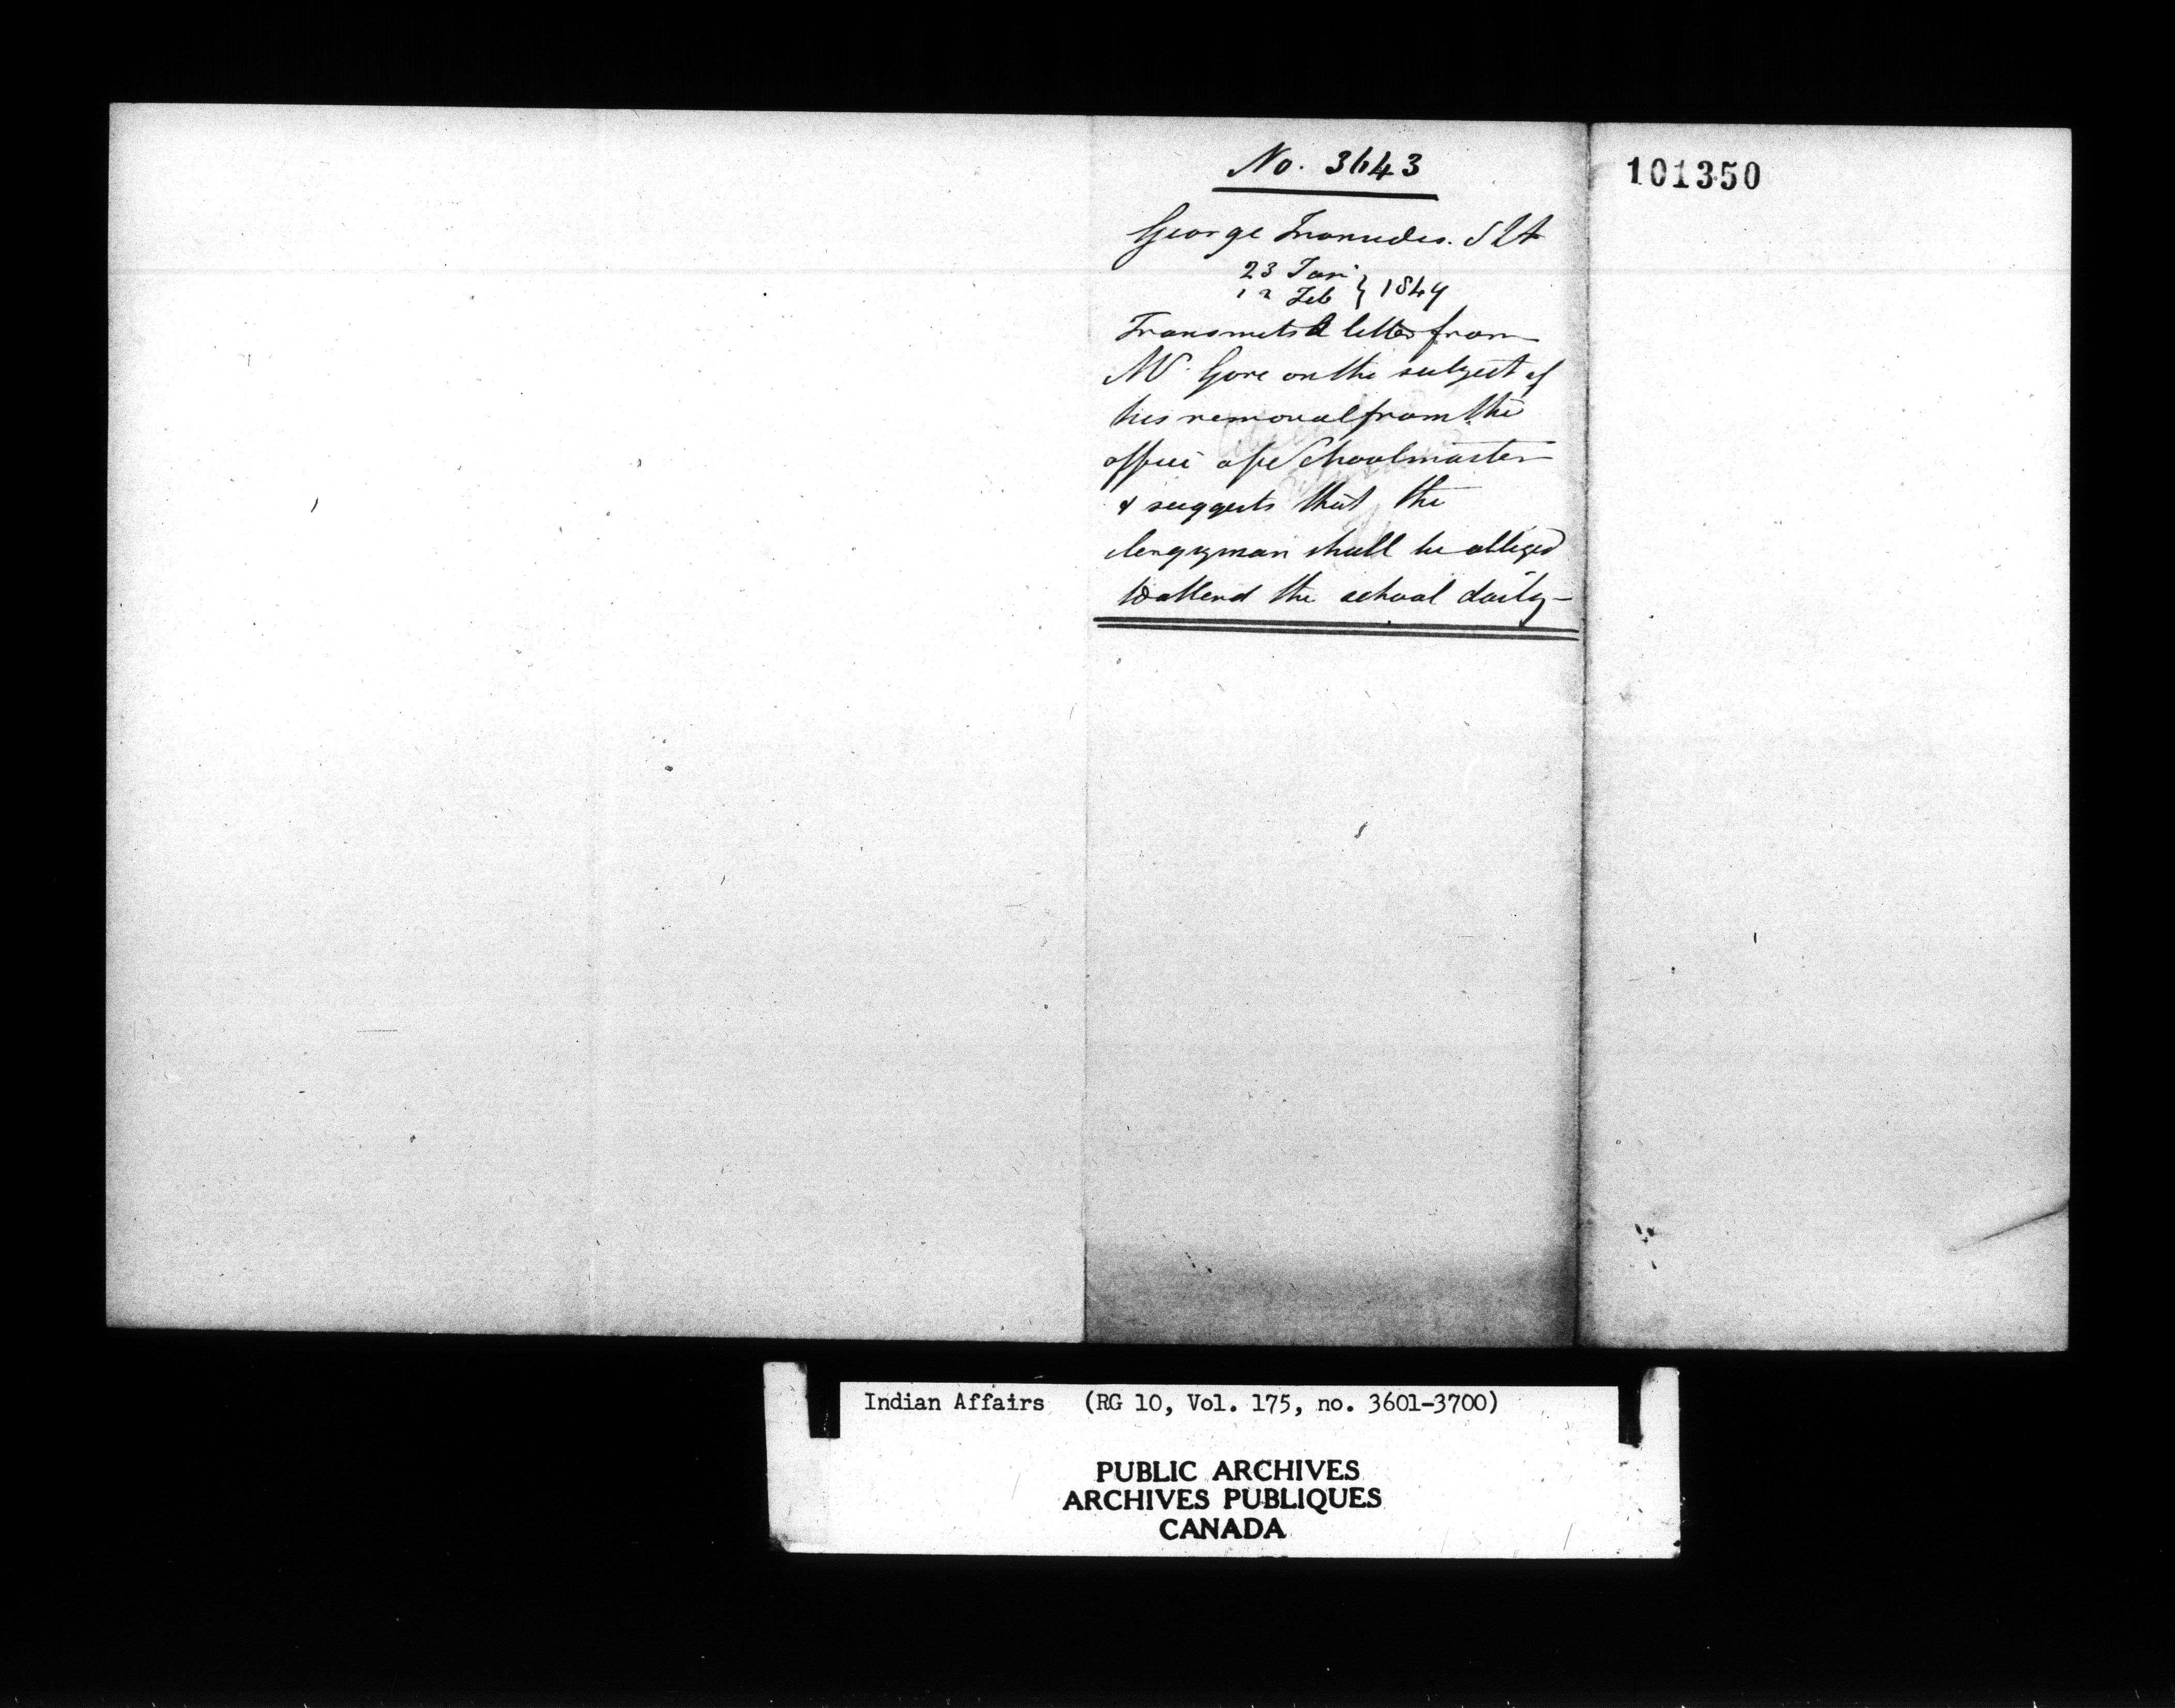 No. 3643
101350
George Ironsides. S I A
23 Jany } 1849
12 Feb
Transmits a letter from
Mr. Gore on the subject of
his removal from the
office of Schoolmaster
& suggests that the
clergyman shall be obliged
to attend the school daily—
Indian Affairs (RG 10, Vol. 175, no. 3601-3700)
PUBLIC ARCHIVES
ARCHIVES PUBLIQUES
CANADA